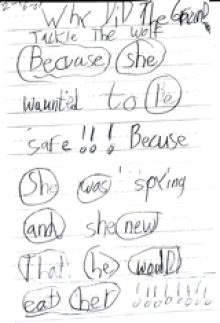 Why Did The Grand
Tackle The Wolf
Because she
waunted to be
safe!!! Becuse
She was spying
and she new
That he would
eat her !!!!!!!!